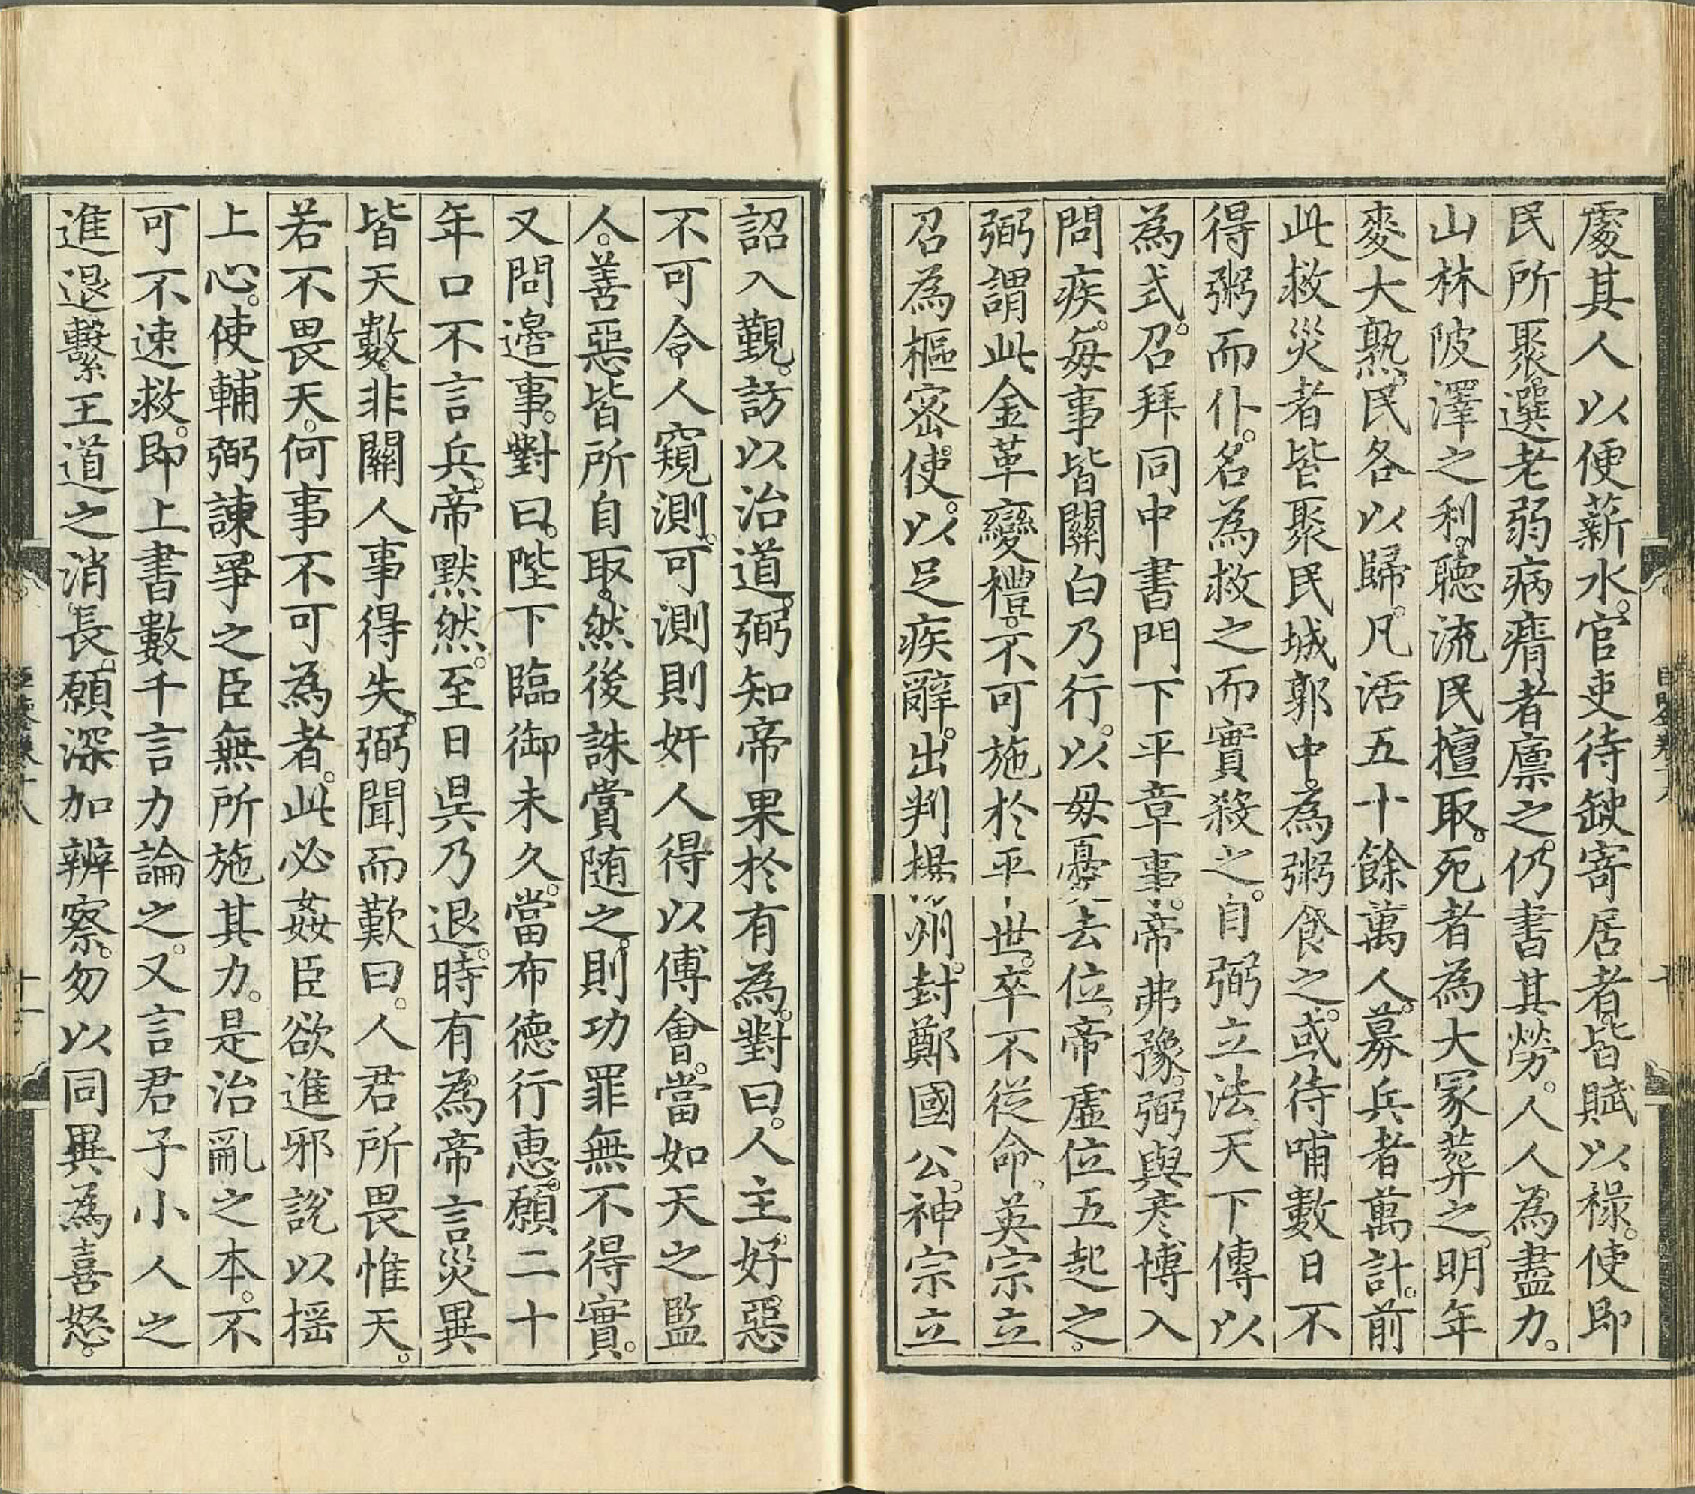 處其人以便薪水。官吏待缺寄居者皆賦以祿。使即
民所聚選老弱病瘠者廩之。仍書其勞。人人為盡力。
山林陂澤之利。聽流民擅取。死者為大冢葬之。明年
麥大熟。民各以歸。凡活五十餘萬人。募兵者萬計。前
此救災者皆聚民城郭中。為粥食之。或待哺數日不
得粥而仆。名為救之而實殺之。自弼立法。天下傳以
為式。召拜同中書門下平章事。帝弗豫。弼與彥博入
問疾。每事皆關白乃行。以母憂去位。帝虛位五起之。
弼謂此金革變禮。不可施於平世。卒不從命。英宗立
召為樞密使。以足疾辭。出判楊州。封鄭國公。神宗立
詔入覲。訪以治道。弼知帝果於有為。對曰。人主好惡
不可令人窺測。可測則奸人得以傅會。當如天之監
人。善惡皆所自取。然後誅賞随之。則功罪無不得實。
又問邊事。對曰。陛下臨御未久。當布德行惠。願二十
年口不言兵。帝默然。至日昃乃退。時有為帝言災異
皆天數。非關人事得失。弼聞而歎曰。人君所畏惟天。
若不畏天。何事不可為者。此必姦臣欲進邪說以揺
上心。使輔弼諫爭之臣無所施其力。是治亂之本。不
可不速救。即上書數千言力論之。又言君子小人之
進退繫王道之消長。願深加辨察。勿以同異為喜怒。